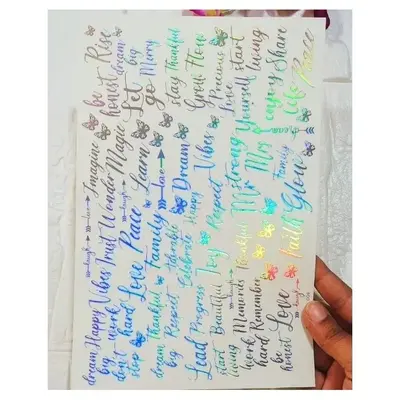 be honest
Rise
dream big
Merry
Let go
stay Thankful
Grow
Flow
Precious
Love
start living
Yourself
enjoy
Share
Life
Peace
Imagine
love
Magic
Learn
Dream
Vibes
Strong
Mr
Mr
dream
Family
Glow
laugh
Trust
Wonder
Peace
Family
Adorable
Celebrate
Happy
Respect
Joy
Thankful
Faith
dream big
Happy
Vibes
don't stop
work hard
Love
laugh
dream big
Thankful
Respect
Lead
Progress
start living
Beautiful
Memories
work hard
Remember
be honest
Love
laugh